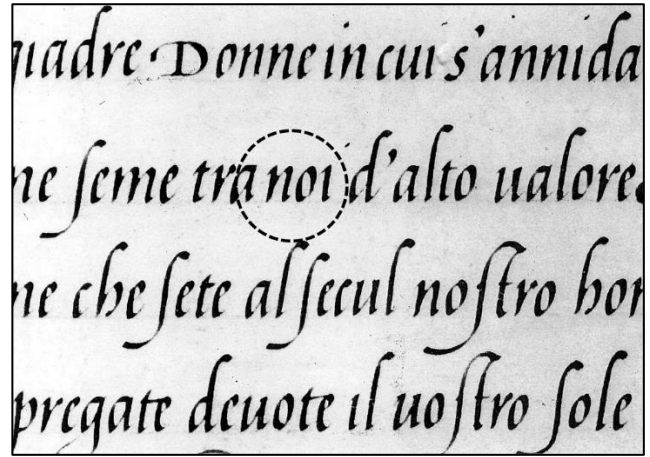 uadre · Donne in cui s'annida
ne ſeme tra noi d'alto ualore
ne che ſete al ſecul noſtro hon
pregate deuote il uoſtro ſole